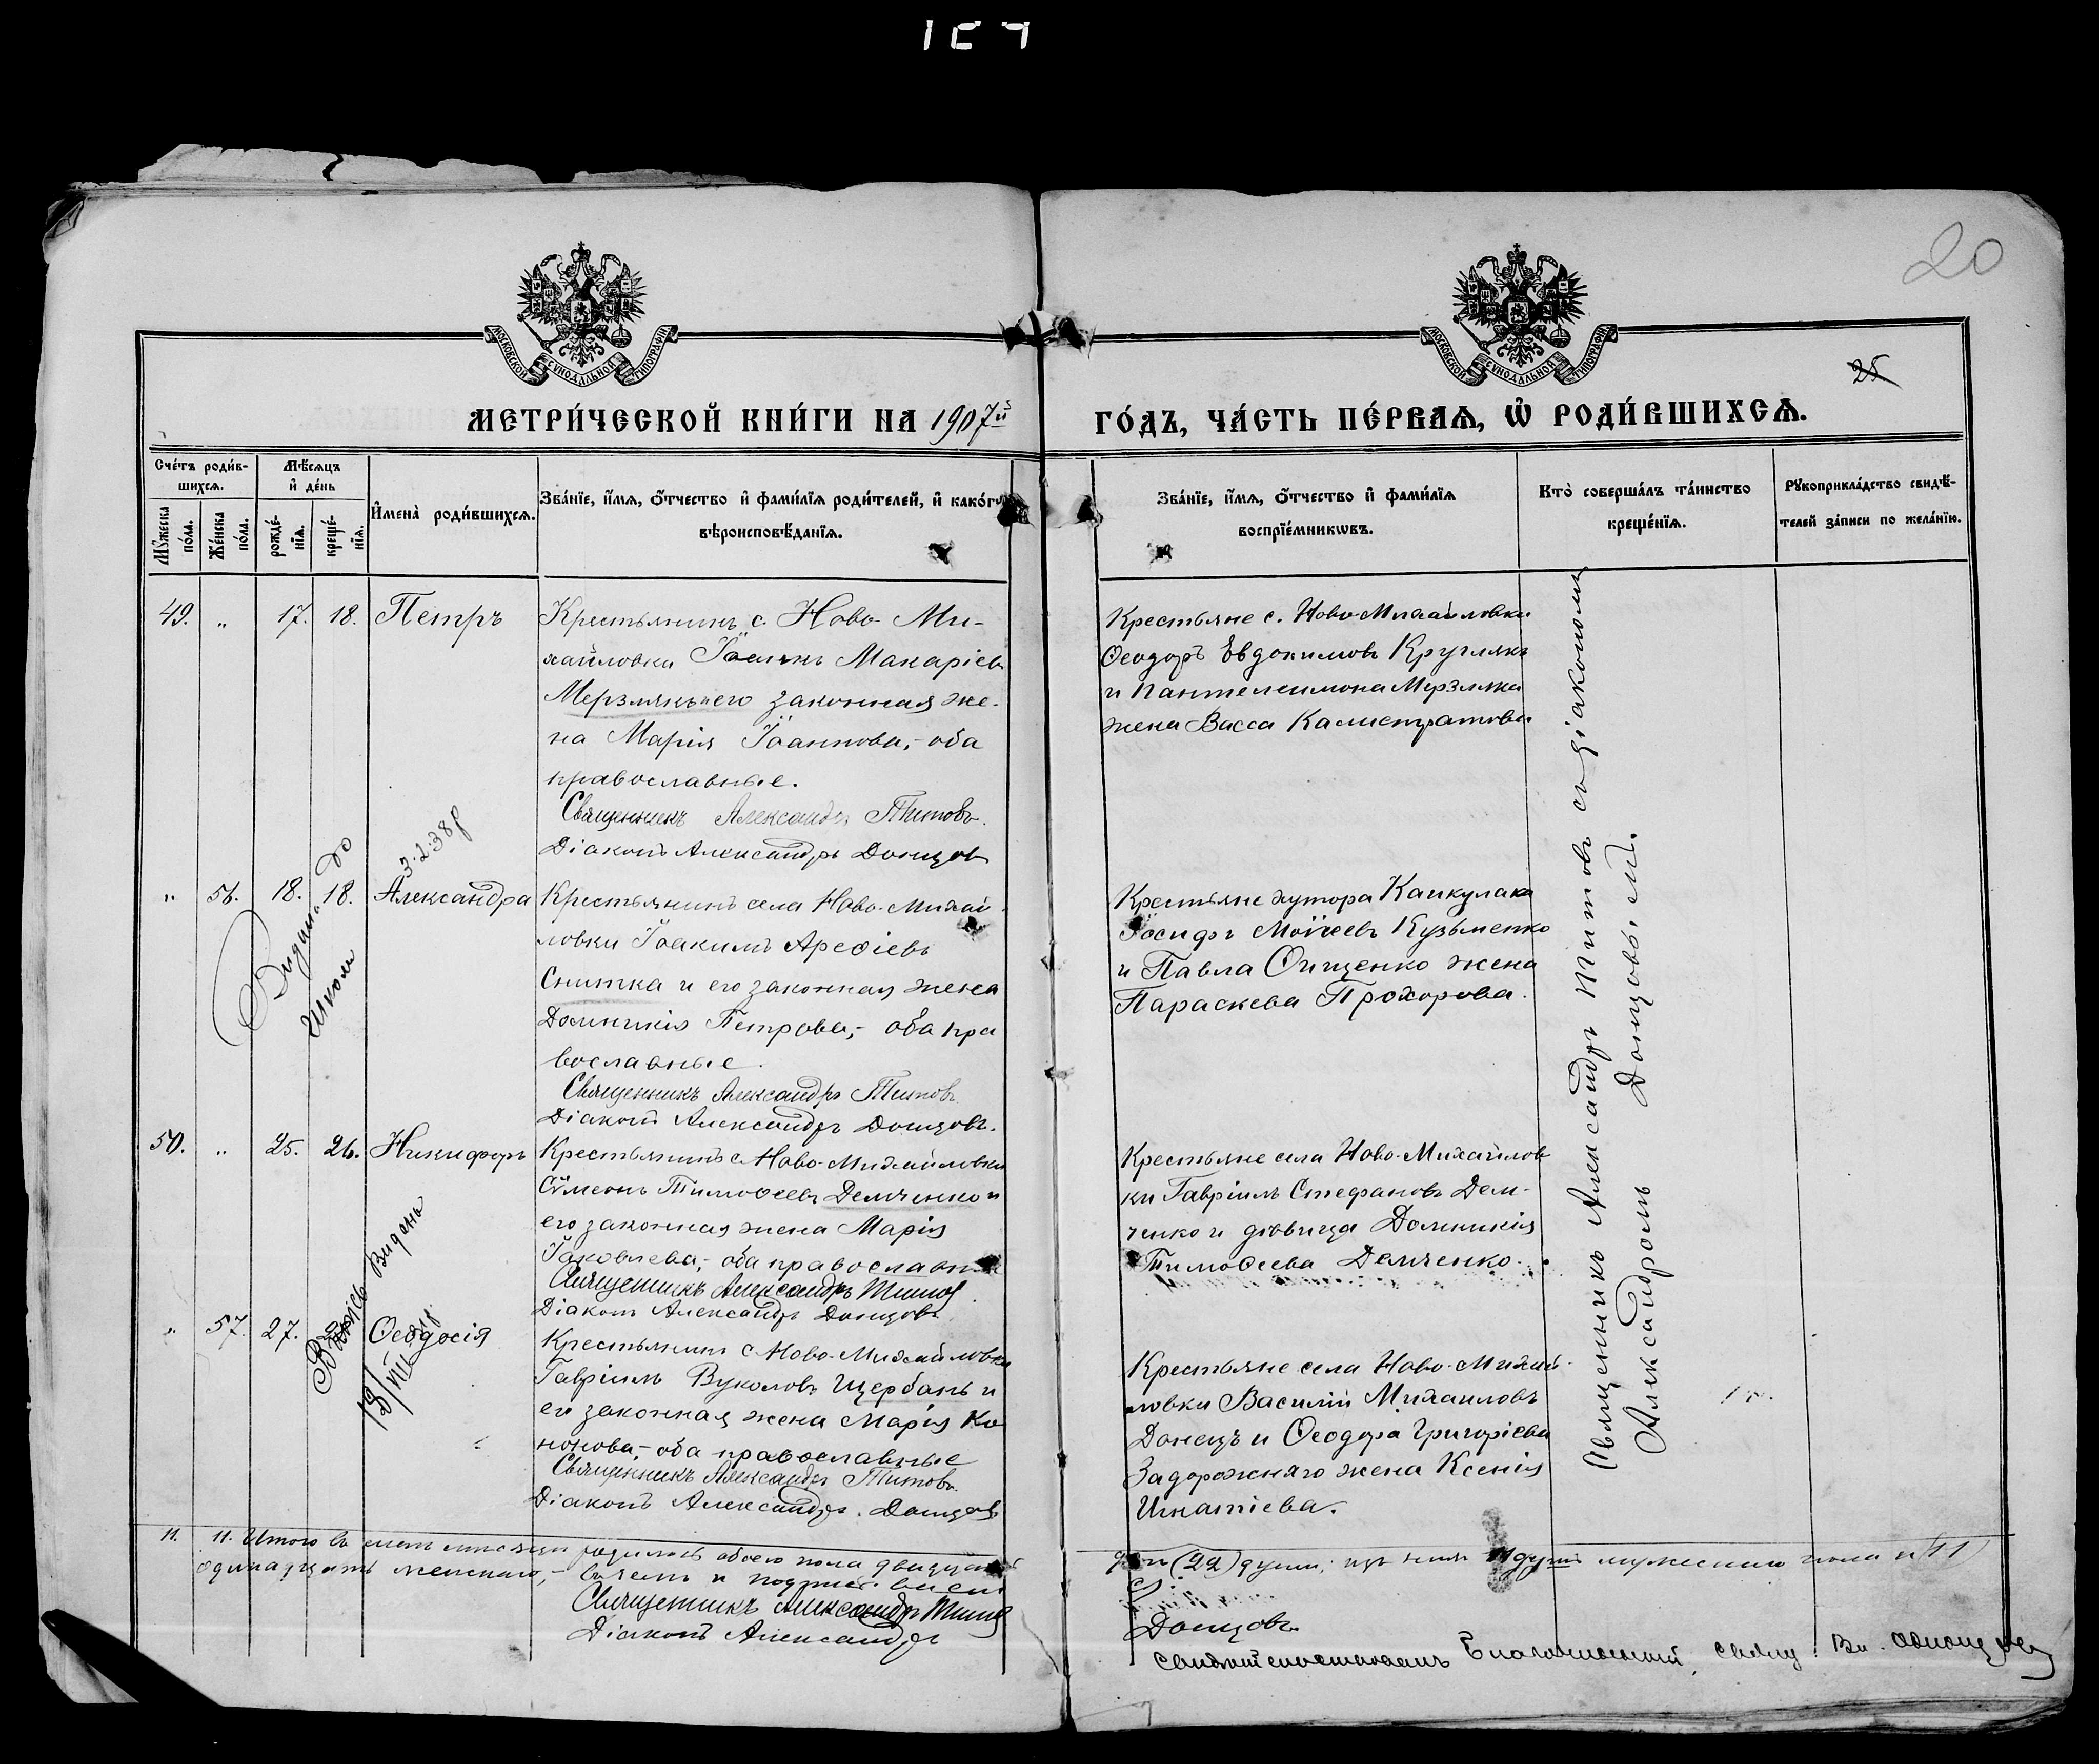 20
25
МОСКОВСКОЙ СѴНОДАЛЬНОЙ ТИПОГРАФІИ
МОСКОВСКОЙ СѴНОДАЛЬНОЙ ТИПОГРАФІИ
МЕТРИ́ЧЕСКОЙ КНИ́ГИ НА 1907й ГО́ДЪ, ЧА́СТЬ ПЕ́РВАѦ, Ѡ҆ РОДИ́ВШИХСѦ.
Сче́тъ роди́в-
шихсѧ.
Мꙋ́жеска по́ла.
Же́нска по́ла.
Мѣ́сѧцъ
и҆ де́нь
рожде́-нїѧ.
креще́-нїѧ.
И҆мена̀ роди́вшихсѧ.
Зва́нїе, и҆́мѧ, ѻ҆́тчество и҆ фами́лїѧ роди́телей, и҆ како́гѡ
вѣроисповѣ́данїѧ.
Зва́нїе, и҆́мѧ, ѻ҆́тчество и҆ фами́лїѧ
воспрїе́мникѡвъ.
Кто̀ соверша́лъ та́инство
креще́нїѧ.
Рꙋкоприкла́дство свидѣ́-
телей за́писи по жела́нїю.
49. " 17. 18. Петръ
Крестьянинъ с. Ново-Ми-
хайловки Іоаннъ Макаріевъ
Мерзлякъ и его законная же-
на Марія Іоаннова,- оба
православные.
Священникъ Александръ Титовъ.
Діаконъ Александръ Донцовъ
Крестьяне с. Ново-Михайловки
Ѳеодоръ Евдокимовъ Круглякъ
и Пантелеимона Мерзляка
жена Васса Калистратова
" 56. 18. 18. Александра
3.2.38 р
Видана
до
школи
Крестьянинъ села Ново-Михай-
ловки Іоакимъ Арефіевъ
Снитка и его законная жена
Домникія Петрова,- оба пра
вославные.
Священникъ Александръ Титовъ
Діаконъ Александръ Донцовъ.
Крестьяне хутора Канкулака
Іосифъ Моисеевъ Кузьменко
и Павла Онищенко жена
Параскева Прохорова.
50. " 25. 26. Никифоръ
Крестьянинъ с. Ново-Михайловки
Сѵмеонъ Тимоѳеевъ Демченко и
его законная жена Марія
Іаковлева,- оба православн
Священникъ Александръ Титовъ
Діаконъ Александръ Донцовъ
Крестьяне села Ново-Михайлов
ки Гавріилъ Стефановъ Дем-
ченко и дѣвица Домникія
Тимоѳеева Демченко.
" 57. 27. Ѳеодосія
Видана
Крестьянинъ с. Ново-Михайловки
Гавріилъ Вуколовъ Щербань и
его законная жена Марія Ко
нонова,- оба православные
Священникъ Александръ Титовъ.
Діаконъ Александръ Донцовъ
Крестьяне села Ново-Михай-
ловки Василій Михаиловъ
Донецъ и Ѳеодора Григоріева
Задорожняго жена Ксенія
Игнатіева.
Священникъ Александръ Титовъ съ діакономъ
Александромъ Донцовымъ.
11. 11. Итого въ семъ мѣсяцѣ родилось обоего пола двадцать
два (22) души; изъ нихъ 11 душъ мужескаго пола и (11)
одинадцать женскаго,- въ чемъ и подписуемся
Священникъ Александръ Титовъ
Діаконъ Александръ Донцовъ